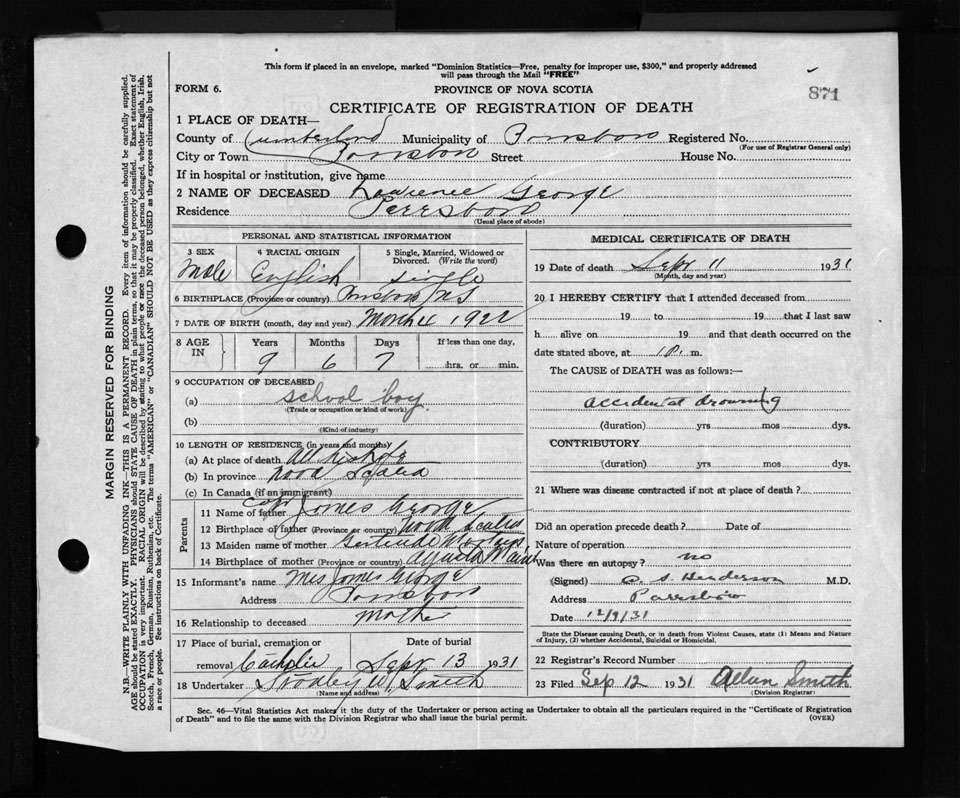 This form if placed in an envelope, marked "Dominion Statistics—Free, penalty for improper use, $300," and properly addressed
will pass through the Mail "FREE"
871
FORM 6.
PROVINCE OF NOVA SCOTIA
CERTIFICATE OF REGISTRATION OF DEATH
1 PLACE OF DEATH—
County of Cumberland Municipality of Parrsboro Registered No.
(For use of Registrar General only)
City or Town Parrsboro Street House No.
If in hospital or institution, give name
2 NAME OF DECEASED George
Residence Parrsboro
(Usual place of abode)
PERSONAL AND STATISTICAL INFORMATION
3 SEX 4 RACIAL ORIGIN 5 Single, Married, Widowed or
Divorced. (Write the word)
Male English Single
6 BIRTHPLACE (Province or country) Parrsboro NS
7 DATE OF BIRTH (month, day and year) March 4 1922
8 AGE IN Years Months Days If less than one day,
9 6 7 hrs. or min.
9 OCCUPATION OF DECEASED
(a) School boy
(Trade or occupation or kind of work)
(b)
(Kind of industry)
10 LENGTH OF RESIDENCE (in years and months)
(a) At place of death All his life
(b) In province Nova Scotia
(c) In Canada (if an immigrant)
Parents
11 Name of father Capt James George
12 Birthplace of father (Province or country) Nova Scotia
13 Maiden name of mother Gertrude
14 Birthplace of mother (Province or country) Augusta Maine
15 Informant's name Mrs James George
Address Parrsboro
16 Relationship to deceased Mother
17 Place of burial, cremation or Date of burial
removal Catholic Sepr 13 1931
18 Undertaker W. Smith
(Name and address)
MEDICAL CERTIFICATE OF DEATH
19 Date of death Sepr 11 1931
(Month, day and year)
20 I HEREBY CERTIFY that I attended deceased from
19 to 19 that I last saw
h alive on 19 and that death occurred on the
date stated above, at 1 P. m.
The CAUSE of DEATH was as follows:—
accidental drowning
(duration) yrs mos dys.
CONTRIBUTORY
(duration) yrs mos dys.
21 Where was disease contracted if not at place of death?
Did an operation precede death? Date of
Nature of operation
Was there an autopsy? no
(Signed) Henderson M.D.
Address Parrsboro
Date 12/9/31
State the Disease causing Death, or in death from Violent Causes, state (1) Means and Nature
of Injury, (2) whether Accidental, Suicidal or Homicidal.
22 Registrar's Record Number
23 Filed Sep 12 1931 Allan Smith
(Division Registrar)
Sec. 46—Vital Statistics Act makes it the duty of the Undertaker or person acting as Undertaker to obtain all the particulars required in the "Certificate of Registration
of Death" and to file the same with the Division Registrar who shall issue the burial permit. (OVER)
MARGIN RESERVED FOR BINDING
N.B.—WRITE PLAINLY WITH UNFADING INK—THIS IS A PERMANENT RECORD. Every item of information should be carefully supplied.
AGE should be stated EXACTLY. PHYSICIANS should STATE CAUSE OF DEATH in plain terms, so that it may be properly classified. Exact statement of
OCCUPATION is very important. RACIAL ORIGIN will be described by stating to what people or race the deceased person belonged, whether English, Irish,
Scotch, French, German, Russian, Ruthenian, etc. The terms "AMERICAN" or "CANADIAN" SHOULD NOT BE USED as they express citizenship but not
a race or people. See instructions on back of Certificate.